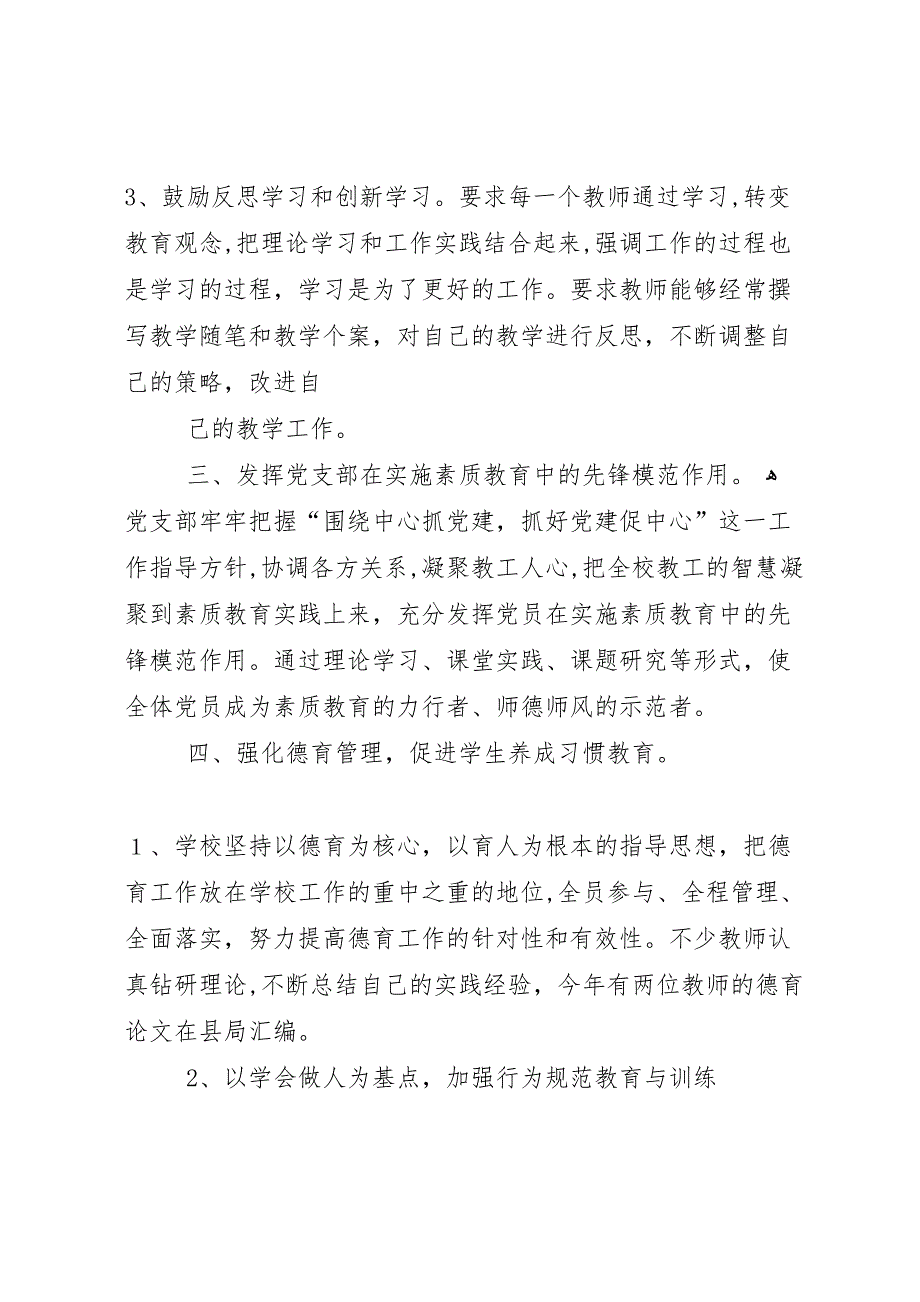 3、鼓励反思学习和创新学习。要求每一个教师通过学习,转变
教育观念,把理论学习和工作实践结合起来,强调工作的过程也
是学习的过程，学习是为了更好的工作。要求教师能够经常撰
写教学随笔和教学个案，对自己的教学进行反思，不断调整自
己的策略，改进自
己的教学工作。
三、发挥党支部在实施素质教育中的先锋模范作用。 ﻫ
党支部牢牢把握“围绕中心抓党建，抓好党建促中心”这一工
作指导方针,协调各方关系,凝聚教工人心,把全校教工的智慧凝
聚到素质教育实践上来，充分发挥党员在实施素质教育中的先
锋模范作用。通过理论学习、课堂实践、课题研究等形式，使
全体党员成为素质教育的力行者、师德师风的示范者。
四、强化德育管理，促进学生养成习惯教育。
１、学校坚持以德育为核心，以育人为根本的指导思想，把德
育工作放在学校工作的重中之重的地位,全员参与、全程管理、
全面落实，努力提高德育工作的针对性和有效性。不少教师认
真钻研理论,不断总结自己的实践经验，今年有两位教师的德育
论文在县局汇编。
2、以学会做人为基点，加强行为规范教育与训练